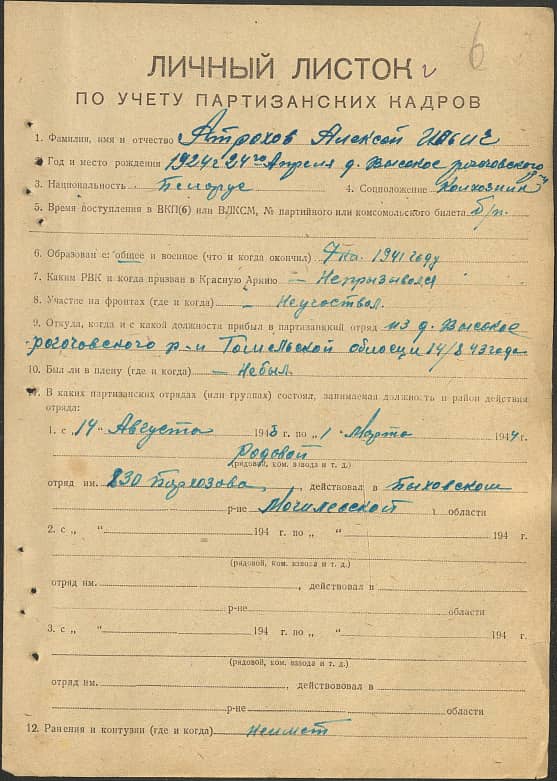 6
ЛИЧНЫЙ ЛИСТОК
ПО УЧЕТУ ПАРТИЗАНСКИХ КАДРОВ
1. Фамилия, имя и отчество Астрохов Алексей Ильич
2. Год и место рождения 1924 г 24го Апреля д. Высокое рогочовского
3. Национальность Белорус 4. Соцположение Колхозник
5. Время поступления в ВКП(б) или ВЛКСМ, № партийного или комсомольского билета б/п.
6. Образован е: общее и военное (что и когда окончил) 7 кл. 1941 году
7. Каким РВК и когда призван в Красную Армию — Непризывался
8. Участие на фронтах (где и когда) — Неучоствол.
9. Откуда, когда и с какой должности прибыл в партизанский отряд из д. Высокое
рогочовского р-н Гомельской облости 14/8 43 года
10. Был ли в плену (где и когда) — Небыл.
11. В каких партизанских отрядах (или группах) состоял, занимаемая должность и район действия
отряда:
1. с „ 14 “ Августа 1943 г. по „ 1 “ Марта 1944 г.
Родовой
(рядовой, ком. взвода и т. д.)
отряд им. 830 , действовал в Быховском
р-не Могилевской области
2. с „ “ 194 г. по „ “ 194 г.
(рядовой, ком. взвода и т. д.)
отряд им. , действовал в
р-не области
3. с „ “ 194 г. по „ “ 194 г.
(рядовой, ком. взвода и т. д.)
отряд им. , действововал в
р-не области
12. Ранения и контузии (где и когда) неимет